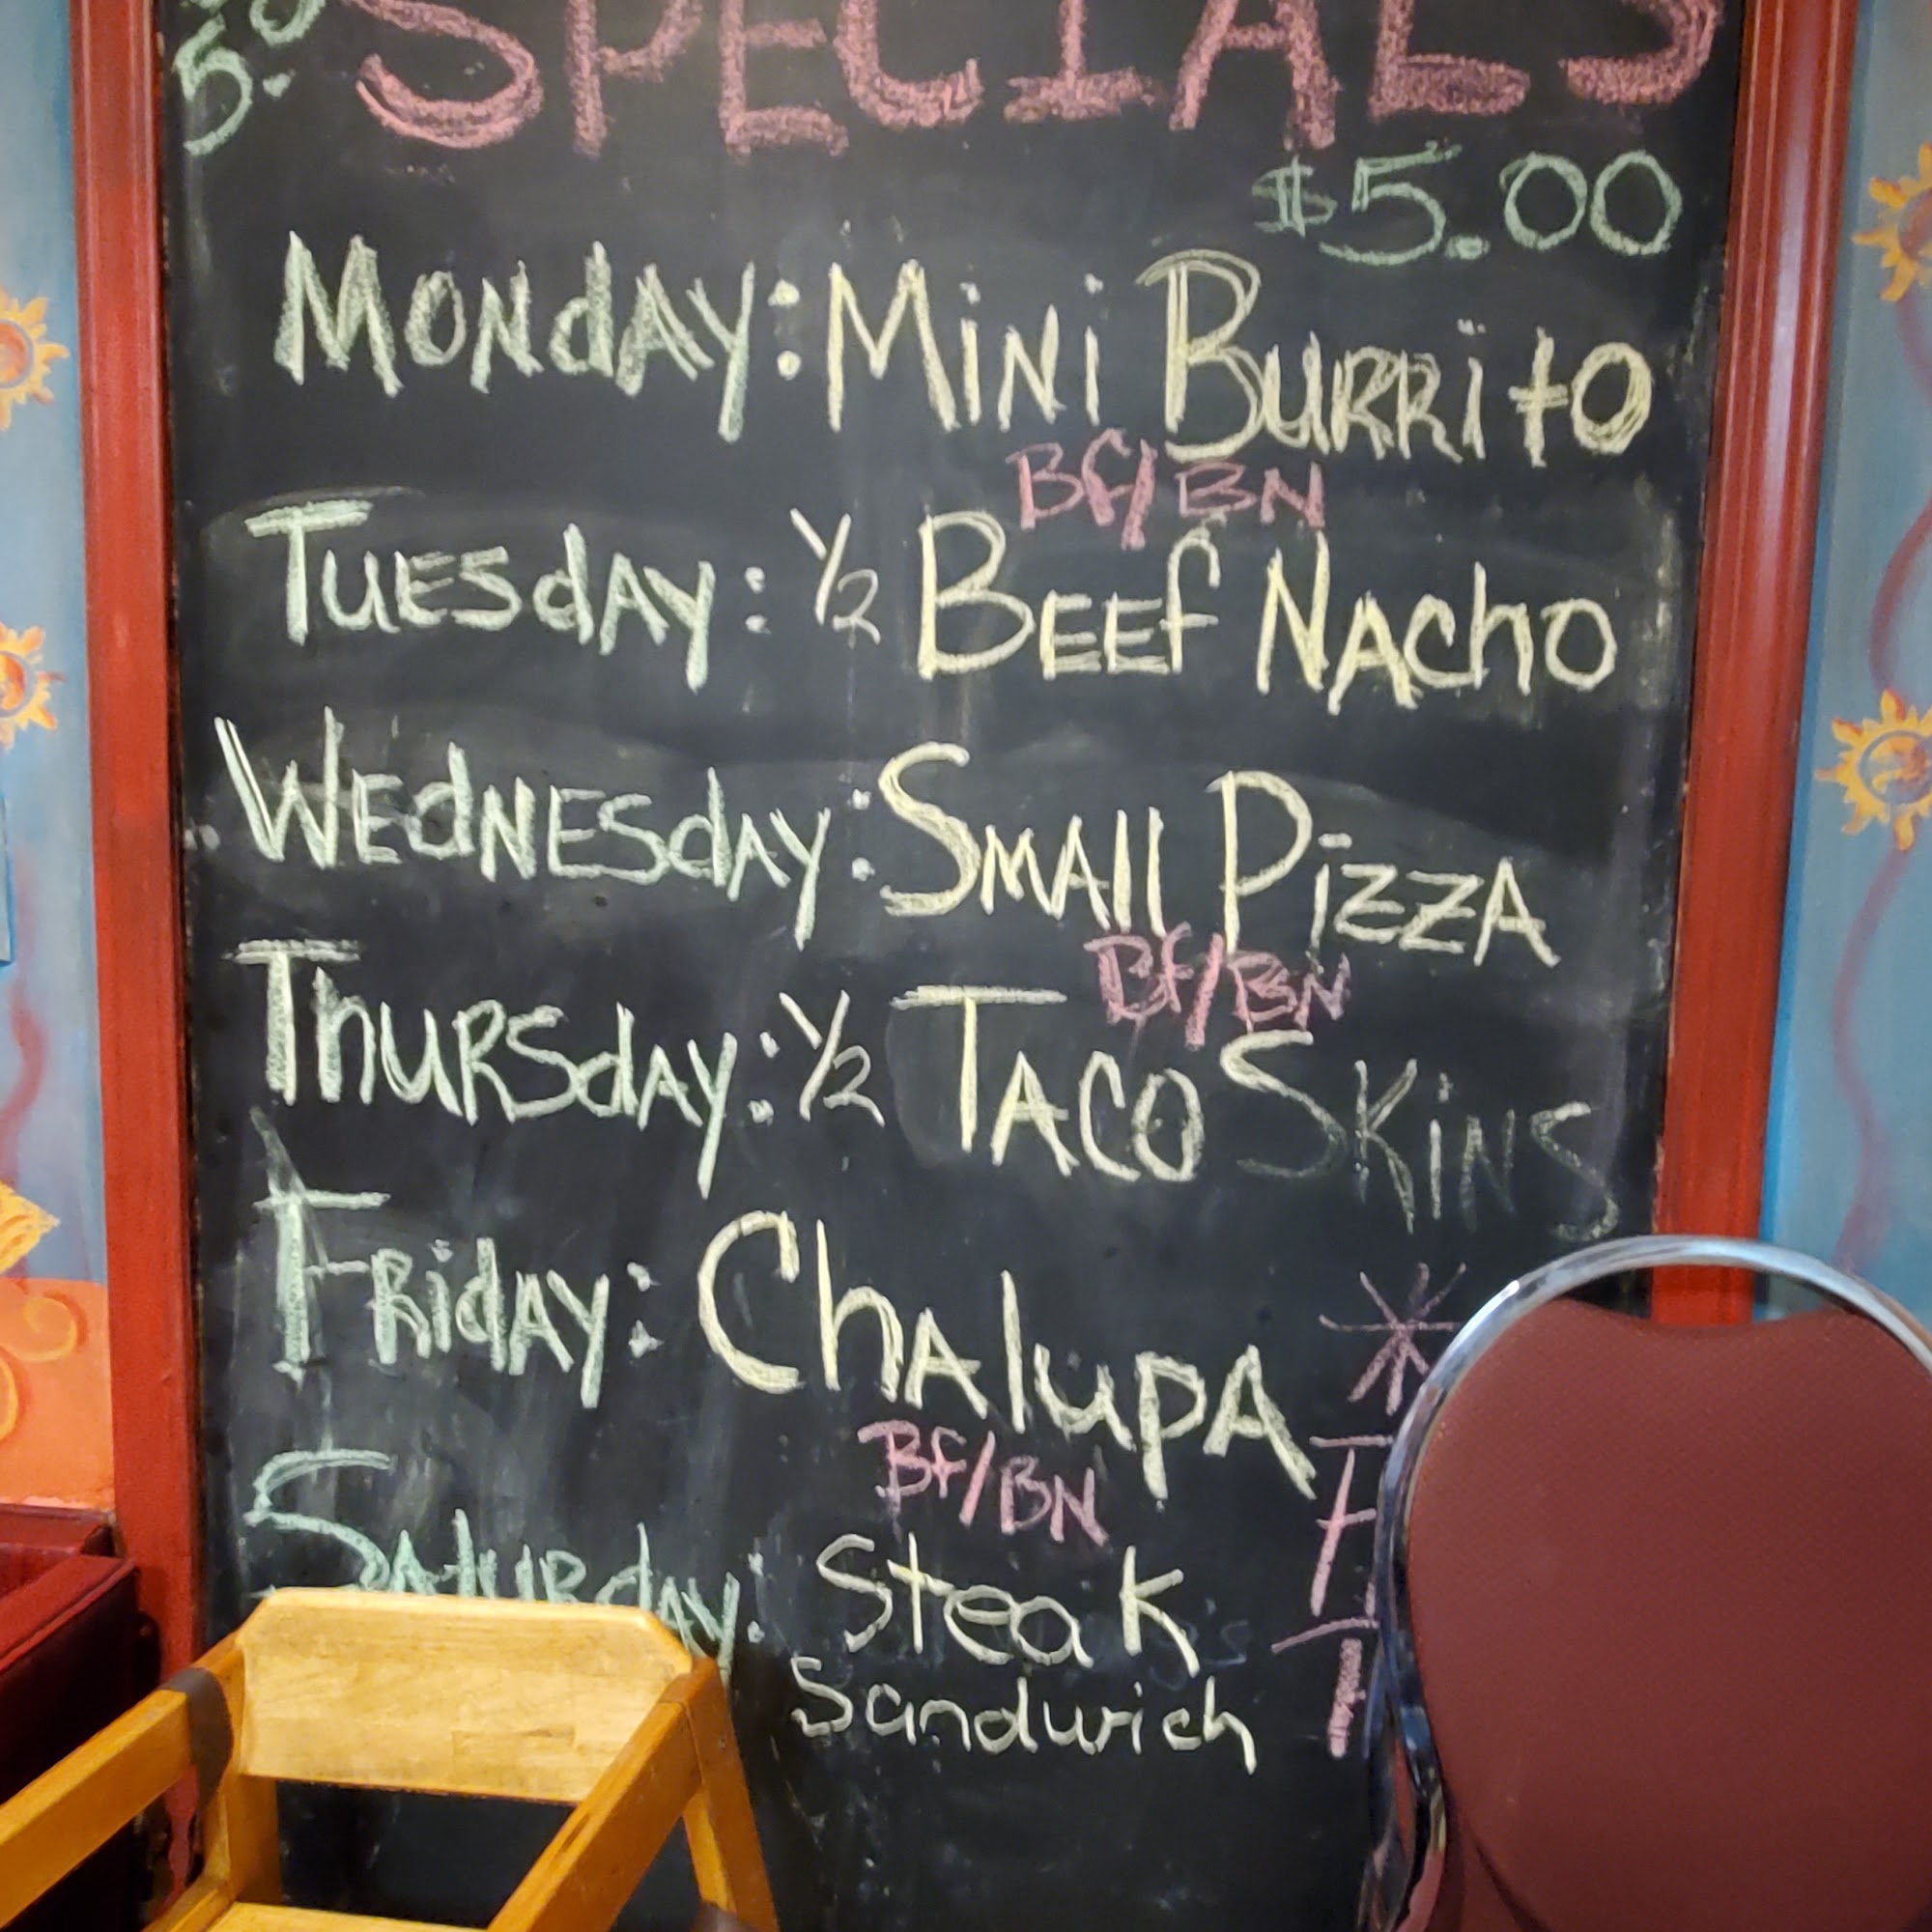 5.
SPECIALS
$5.00
MONdAY: MiNi BURRito
Bf/BN
TUESdAY: 1/2 BEEf NAChO
WEdNESdAY: SMAll PizzA
Bf/BN
ThURSdAY: 1/2 TACO SKiNS
FRidAY: ChAlupA
*
Bf/BN
SAtURdAY: Steak
Sandwich